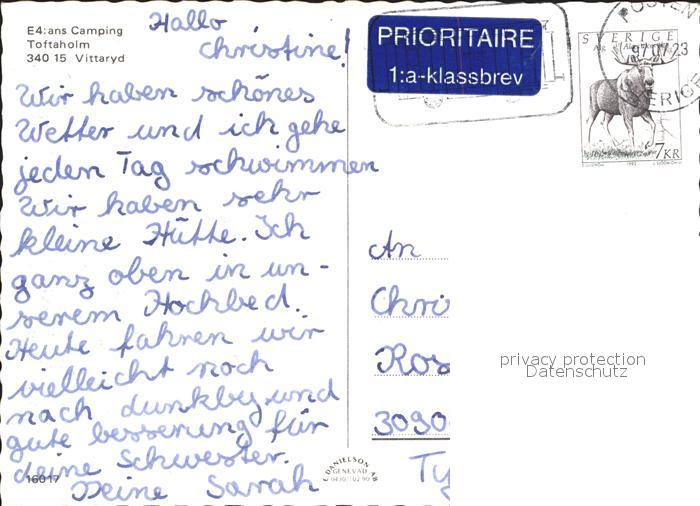 E4:ans Camping
Toftaholm
340 15 Vittaryd
Hallo
christine!
Wir haben schönes
Wetter und ich gehe
jeden Tag schwimmen
Wir haben sehr
kleine Hütte. Ich
ganz oben in un-
serem Hochbed.
Heute fahren wir
vielleicht noch
nach dunkby und
gute besserung für
deine Schwester.
Deine Sarah
16017
PRIORITAIRE
1:a-klassbrev
POSTEN
97 07 23
SVERIGE
SVERIGE
7 KR
An
Chri
Ros
3090
Ty
privacy protection
Datenschutz
DANIELSON AB
GENEVAD